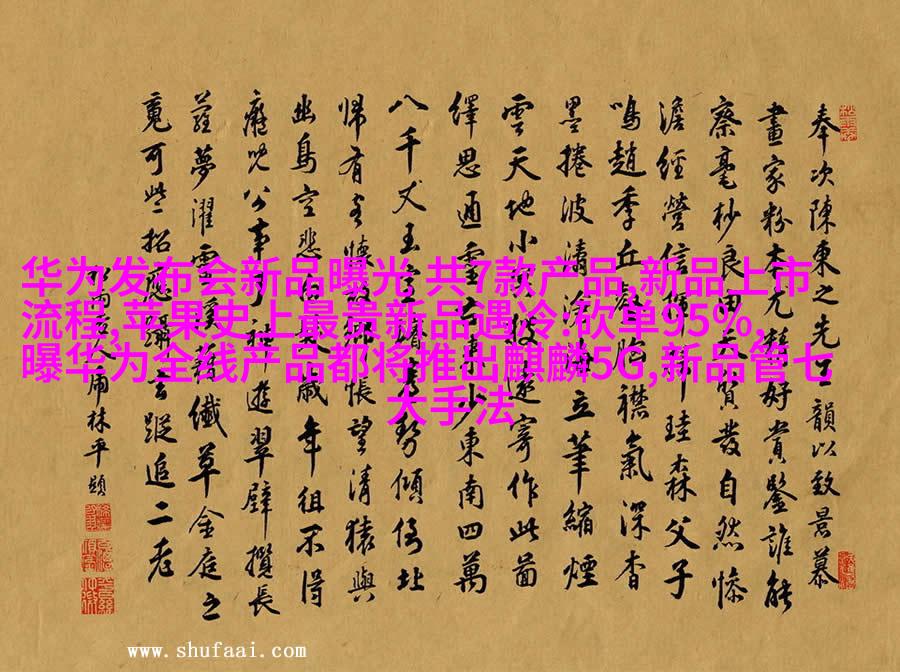 奉次陳東之先生韻以致景慕
畫家粉本尤精好賞鑒誰能
察毫杪良由天質發自然慘
澹經營信珪森父子
鳴趙季丘壑胸襟氣深杳
墨捲波濤滄海立筆縮煙
雲天地小寄作此啚
繹思通靈少東南四萬
八千丈玉勢傾倚北
歸有客懷帳望清猿與
幽鳥空悲歲年徂不得
癡兒公事了遊翠壁攬長
蘿夢濯雪溪纖草金庭之
竟可些招隱言蹤追二老
林平題
华为发布会新品曝光,共7款产品,新品上市
流程,苹果史上最贵新品遇冷:砍单95%,
曝华为全线产品都将推出麒麟5G,新品管七
大手法
www.shufaai.com